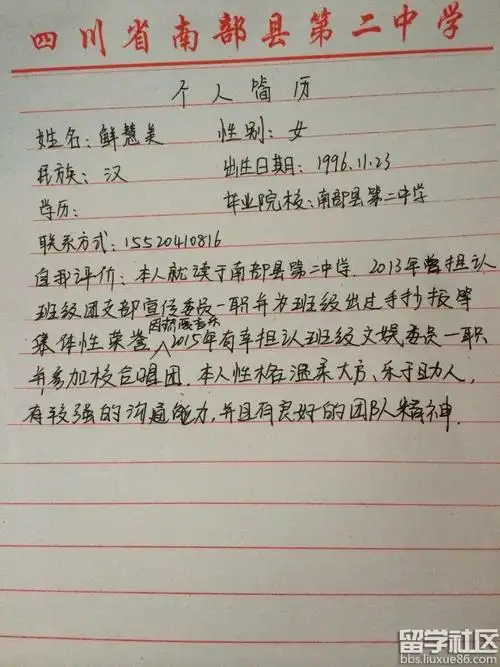 四川省南部县第二中学
个人简历
姓名：鲜慧美 性别：女
民族：汉 出生日期：1996.11.23
学历： 毕业院校：南部县第二中学
联系方式：15520410816
自我评价：本人就读于南部县第二中学．2013年曾担认
班级团支部宣传委员一职并为班级出过手抄报等
因热爱音乐
集体性荣誉，2015年有幸担认班级文娱委员一职
并参加校合唱团．本人性格温柔大方、乐于助人，
有较强的沟通能力，并且有良好的团队精神．
留学社区
bbs.liuxue86.com